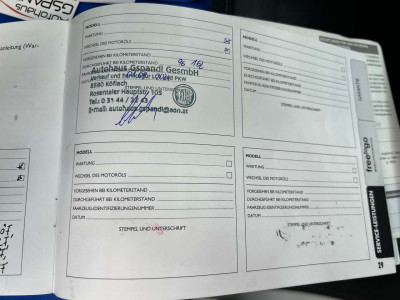 Autohaus
GSPANDL
MODELL
WARTUNG
WECHSEL DES MOTORÖLS
VORGESEHEN BEI KILOMETERSTAND
DURCHGEFÜHRT BEI KILOMETERSTAND
Autohaus Gspandl GesmbH
Verkauf und
PKW
8580 Köflach
STEMPEL UND UNTERSCHRIFT
Rosentaler Hauptstr. 105
Tel.: 0 31 44 /
E-mail: autohaus.gspandl@aon.at
MODELL
WARTUNG
WECHSEL DES MOTORÖLS
VORGESEHEN BEI KILOMETERSTAND
DURCHGEFÜHRT BEI KILOMETERSTAND
FAHRZEUG-IDENTIFIZIERUNGSNUMMER
DATUM
STEMPEL UND UNTERSCHRIFT
MODELL
WARTUNG
WECHSEL DES MOTORÖLS
VORGESEHEN BEI KILOMETERSTAND
DURCHGEFÜHRT BEI KILOMETERSTAND
FAHRZEUG-IDENTIFIZIERUNGSNUMMER
DATUM
STEMPEL UND UNTERSCHRIFT
MODELL
WARTUNG
WECHSEL DES MOTORÖLS
VORGESEHEN BEI KILOMETERSTAND
DURCHGEFÜHRT BEI KILOMETERSTAND
FAHRZEUG-IDENTIFIZIERUNGSNUMMER
DATUM
STEMPEL UND UNTERSCHRIFT
GARANTIE
free2go
SERVICE-LEISTUNGEN
29